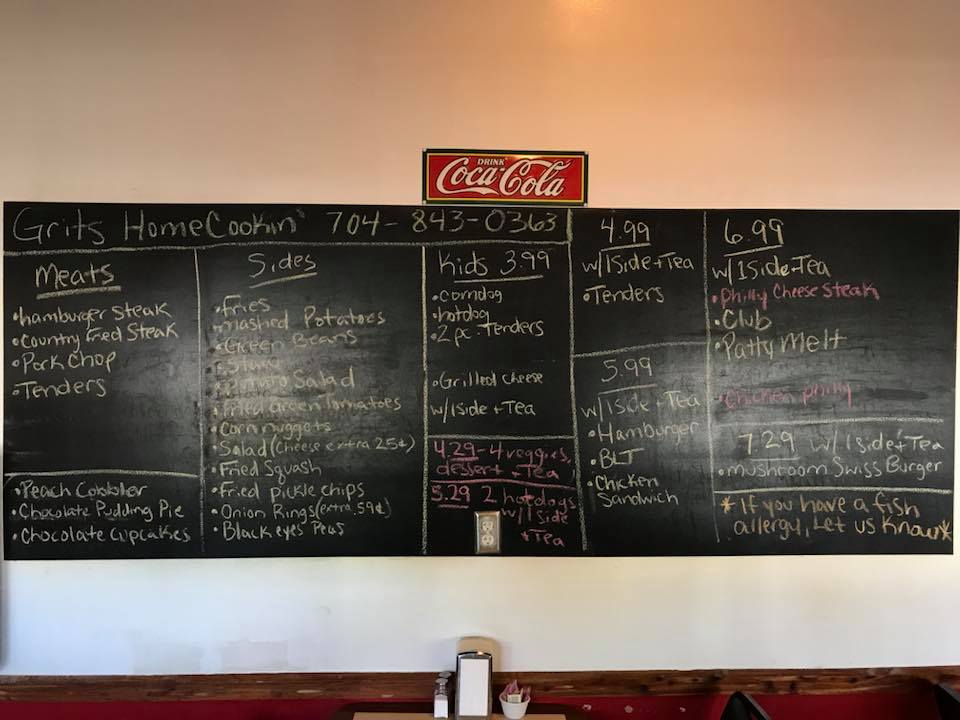 DRINK
Coca-Cola
Grits HomeCookin' 704-843-0363
Meats
•hamburger Steak
•Country Fried Steak
•Pork Chop
•Tenders
•Peach Cobbler
•Chocolate Pudding Pie
•Chocolate Cupcakes
Sides
•Fries
•mashed Potatoes
•Green Beans
•Slaw
•Potato Salad
•Fried Green Tomatoes
•Corn nuggets
•Salad (Cheese extra 25¢)
•Fried Squash
•Fried pickle chips
•Onion Rings (extra .59¢)
•Black eyes Peas
Kids 3.99
•corndog
•hotdog
•2 pc. Tenders
•Grilled Cheese
w/1side + Tea
4.29 - 4 veggies,
dessert + Tea
5.29 2 hotdogs
w/1side
+Tea
4.99
w/1Side + Tea
•Tenders
5.99
w/1side + Tea
•Hamburger
•BLT
•Chicken
Sandwich
6.99
w/1Side + Tea
•Philly Cheese Steak
•Club
•Patty Melt
•Chicken philly
7.29 w/1side + Tea
•mushroom Swiss Burger
*If you have a fish
allergy, Let us Know*